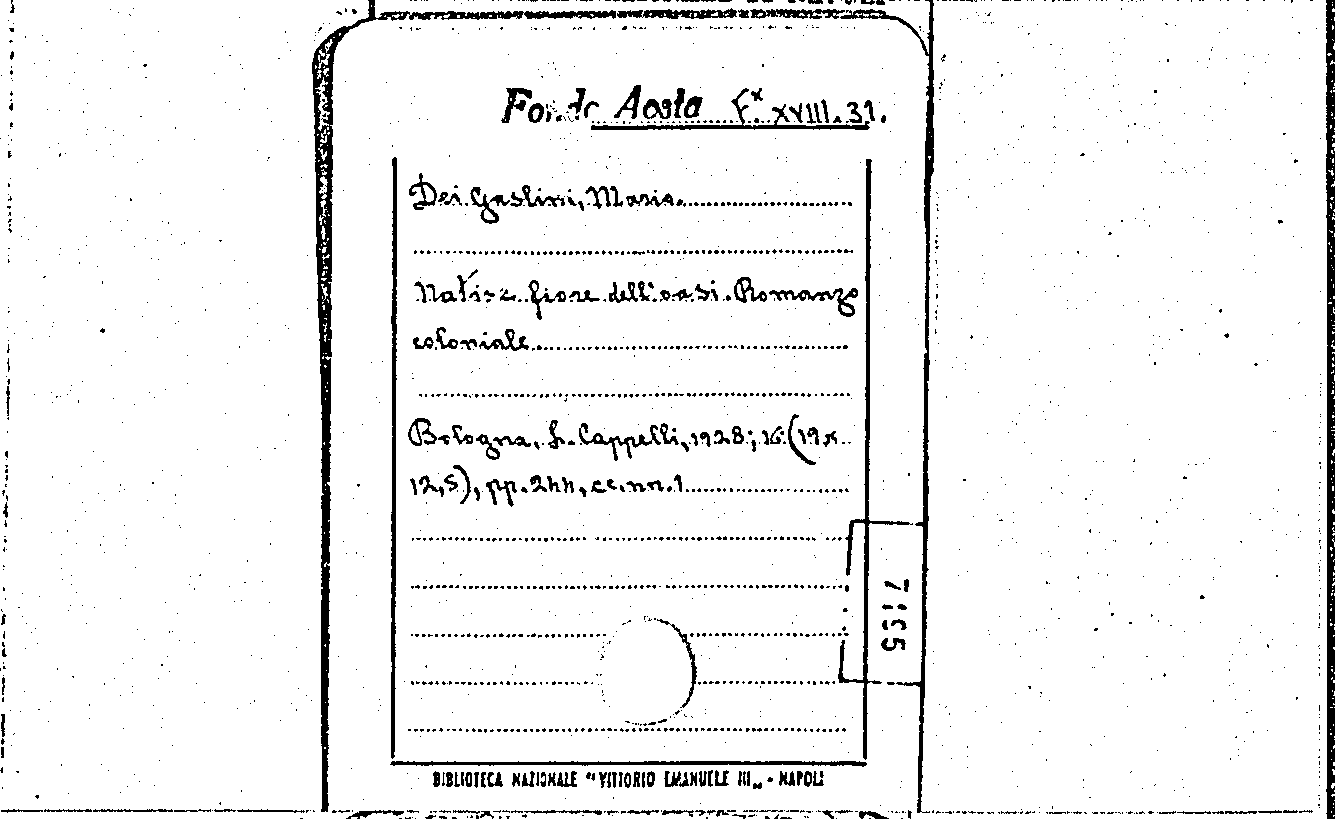 Fondo Aosta F.x XVIII.31.
Dei Gaslini, Mario.
Natisc fiore dell'oasi. Romanzo
coloniale.
Bologna, L. Cappelli, 1928; 16.(19x
12,5), pp. 244, cc.nn.1
7195
BIBLIOTECA NAZIONALE "VITTORIO EMANUELE III„ - NAPOLI